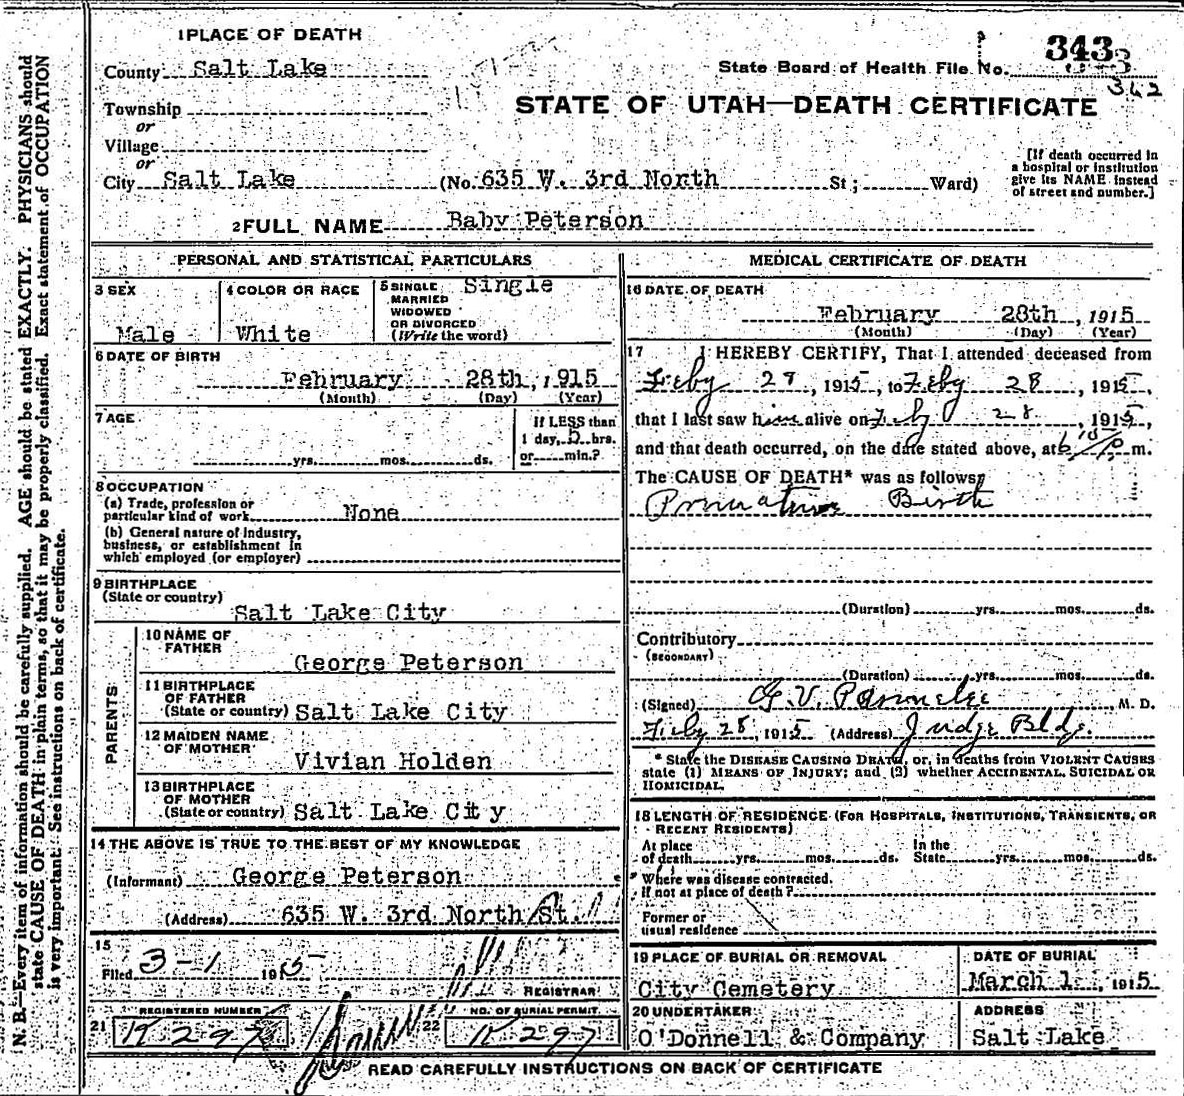 1 PLACE OF DEATH
County Salt Lake
Township
or
Village
or
City Salt Lake (No. 635 W. 3rd North St; Ward)
State Board of Health File No. 343
342
STATE OF UTAH—DEATH CERTIFICATE
[If death occurred in
a hospital or institution
give its NAME instead
of street and number.]
2 FULL NAME Baby Peterson
PERSONAL AND STATISTICAL PARTICULARS
3 SEX
Male
4 COLOR OR RACE
White
5 SINGLE Single
MARRIED
WIDOWED
OR DIVORCED
(Write the word)
6 DATE OF BIRTH
February 28th, 1915
(Month) (Day) (Year)
7 AGE
yrs. mos. ds.
If LESS than
1 day, 5 hrs.
or min.?
8 OCCUPATION
(a) Trade, profession or
particular kind of work None
(b) General nature of Industry,
business, or establishment in
which employed (or employer)
9 BIRTHPLACE
(State or country)
Salt Lake City
PARENTS
10 NAME OF
FATHER
George Peterson
11 BIRTHPLACE
OF FATHER
(State or country) Salt Lake City
12 MAIDEN NAME
OF MOTHER
Vivian Holden
13 BIRTHPLACE
OF MOTHER
(State or country) Salt Lake City
14 THE ABOVE IS TRUE TO THE BEST OF MY KNOWLEDGE
(Informant) George Peterson
(Address) 635 W. 3rd North St.
15
Filed 3-1 1915
REGISTRAR
REGISTERED NUMBER
21 K297
NO. OF BURIAL PERMIT
22 K297
MEDICAL CERTIFICATE OF DEATH
16 DATE OF DEATH
February 28th, 1915
(Month) (Day) (Year)
17 I HEREBY CERTIFY, That I attended deceased from
Feby 28, 1915, to Feby 28, 1915,
that I last saw him alive on Feby 28, 1915,
and that death occurred, on the date stated above, at m.
The CAUSE OF DEATH* was as follows:
Premature Birth
(Duration) yrs. mos. ds.
Contributory
(SECONDARY)
(Duration) yrs. mos. ds.
(Signed) G. V. Parmelee M. D.
Feby 28, 1915 (Address) Judge Bldg.
* State the DISEASE CAUSING DEATH, or, in deaths from VIOLENT CAUSES
state (1) MEANS OF INJURY; and (2) whether ACCIDENTAL, SUICIDAL OR
HOMICIDAL.
18 LENGTH OF RESIDENCE (FOR HOSPITALS, INSTITUTIONS, TRANSIENTS, OR
RECENT RESIDENTS)
At place In the
of death yrs. mos. ds. State yrs. mos. ds.
Where was disease contracted,
If not at place of death?
Former or
usual residence
19 PLACE OF BURIAL OR REMOVAL
City Cemetery
DATE OF BURIAL
March 1, 1915
20 UNDERTAKER
O'Donnell & Company
ADDRESS
Salt Lake
READ CAREFULLY INSTRUCTIONS ON BACK OF CERTIFICATE
N. B.—Every item of information should be carefully supplied. AGE should be stated EXACTLY. PHYSICIANS should
state CAUSE OF DEATH in plain terms, so that it may be properly classified. Exact statement of OCCUPATION
is very important. See instructions on back of certificate.